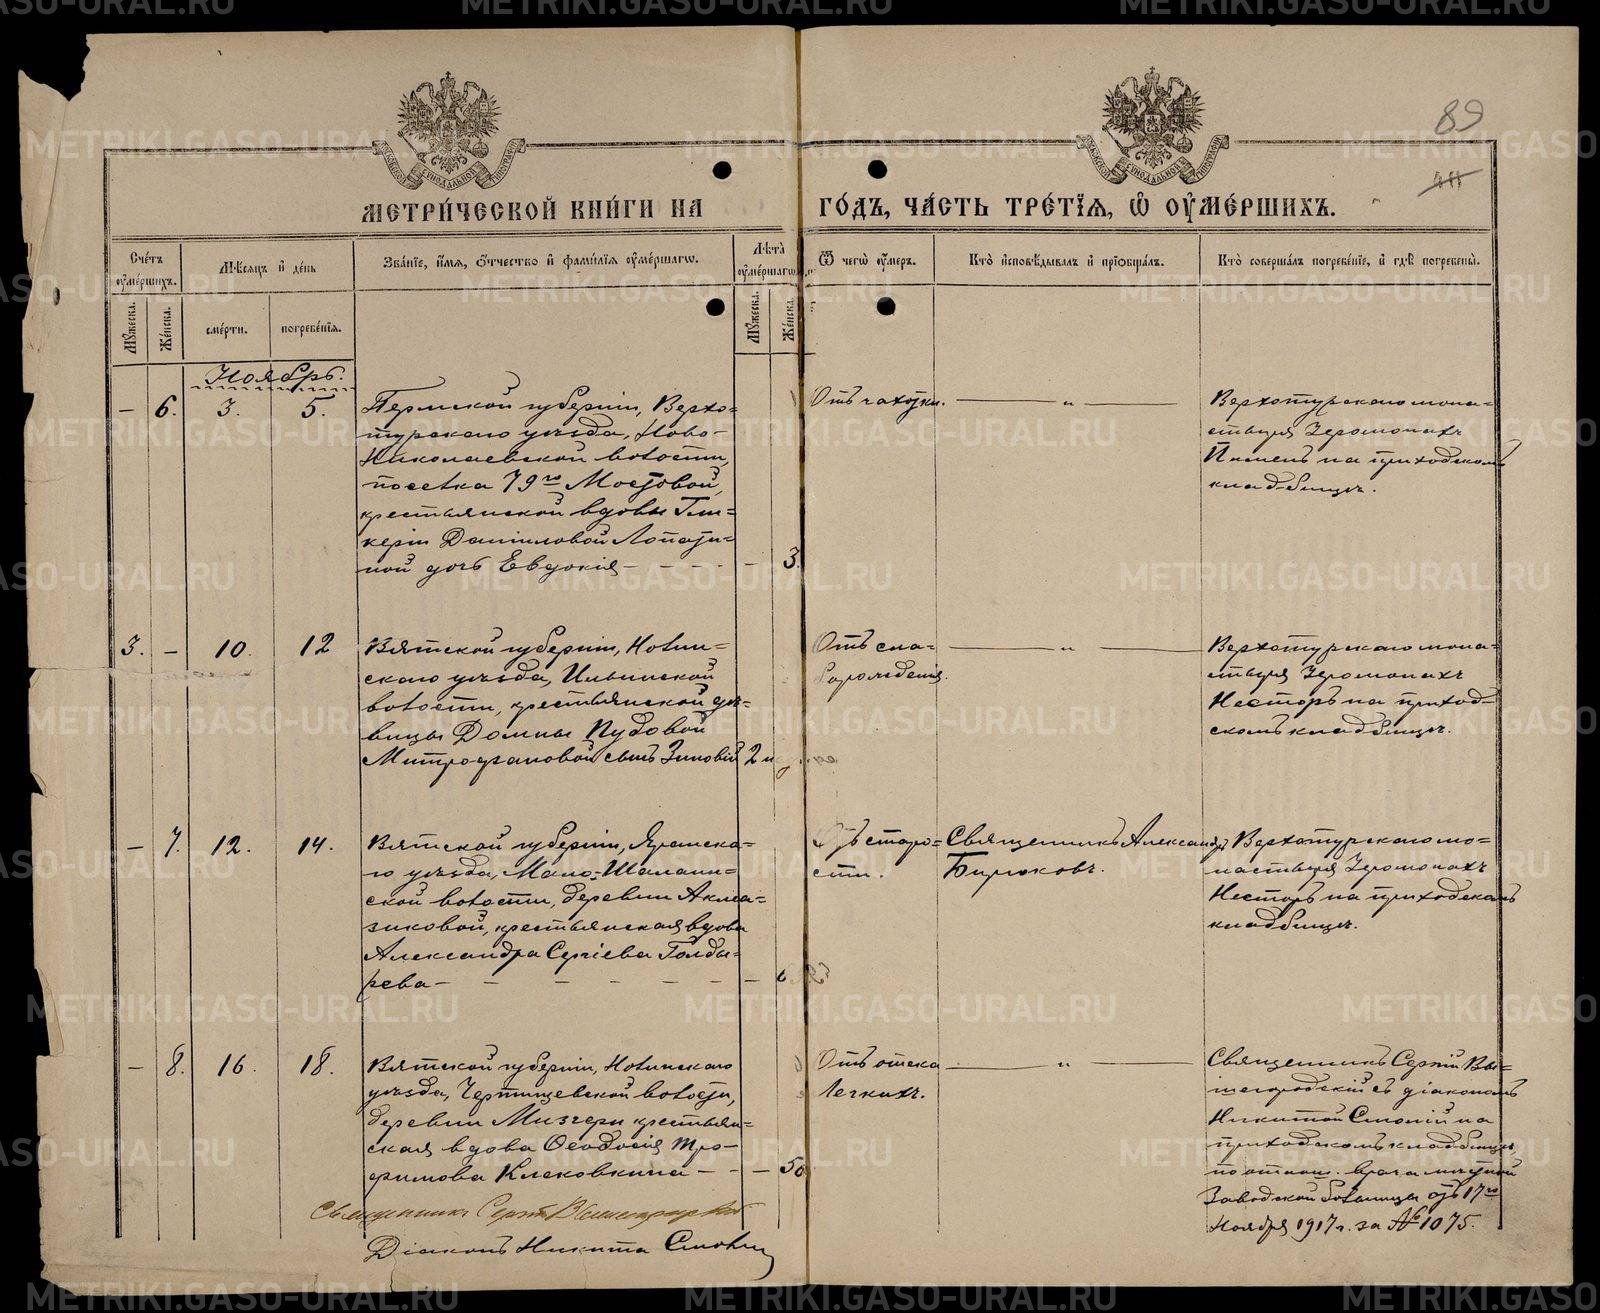 METRIKI.GASO-URAL.RU
89
МЕТРИ́ЧЕСКОЙ КНИ́ГИ НА ГО́ДЪ, ЧА́СТЬ ТРЕ́ТІѦ, Ѽ ОУМЕ́РШИХЪ.
Сче́тъ оуме́ршихъ.
Мѣ́сѧцъ и де́нь
Зва́ніе, и́мѧ, о́тчество и фами́лїѧ оуме́ршагѡ.
Лѣ́та оуме́ршагѡ.
Ѿ чегѡ̀ оу́меръ.
Кто̀ и҆сповѣ́дывалъ и҆ прїѡбща́лъ.
Кто̀ соверша́лъ погребе́нїе, и҆ гдѣ̀ погребены̀.
Мꙋ́жеска.
Же́нска.
сме́рти.
погребе́нїѧ.
Мꙋ́жеска.
Же́нска.
Ноябрь.
— 6. 3. 5.
Пермской губерніи, Верхо=
турскаго уѣзда, Ново-
Николаевской волости,
поселка 79го Мостовой,
крестьянской вдовы Гли=
керіи Даніиловой Лопати=
ной дочь Евдокія — — — — — 3.
Отъ чахотки. — „ —
Верхотурскаго мона=
стыря Іеромонахъ
Пименъ на приходскомъ
кладбищѣ.
3. — 10. 12
Вятской губерніи, Нолин=
скаго уѣзда, Ильинской
волости, крестьянской дѣ=
вицы Домны Пудовой
Митрофановой сынъ Зиновій 2 н
Отъ сла=
борожденія. — „ —
Верхотурскаго мона=
стыря Іеромонахъ
Несторъ на приход=
скомъ кладбищѣ.
— 7. 12. 14.
Вятской губерніи, Яранска=
го уѣзда, Мало-Шалаин=
ской волости, деревни Акма=
зиковой, крестьянская вдова
Александра Сергіева Голды=
рева — — — — — — —
Отъ старо=
сти.
Священникъ Александръ
Бирюковъ.
Верхотурскаго мо=
настыря Іеромонахъ
Несторъ на приходскомъ
кладбищѣ.
— 8. 16. 18.
Вятской губерніи, Нолинскаго
уѣзда, Чертищевской волости,
деревни Мизгери крестьян=
ская вдова Ѳеодосія Тро=
фимова Клековкина — — — 50
Отъ отека
легкихъ. — „ —
Священникъ Сергій Вы=
шегородскій съ діакономъ
Никитой Смолій на
приходскомъ кладбищѣ,
по отнош. врача
заводской больницы отъ 17го
Ноября 1917 г. за № 1075.
Священникъ Сергій Вышегородскій
Діаконъ Никита Смолій